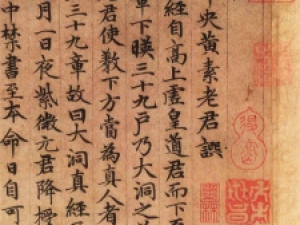 中央黃素老君誤
經自高上虛皇道君而下
單下暎三十九戶乃大洞之
君使教下方當為真人者
三十九章故曰大洞真經
月一日夜紫微元君降
中禁書至本命日自可